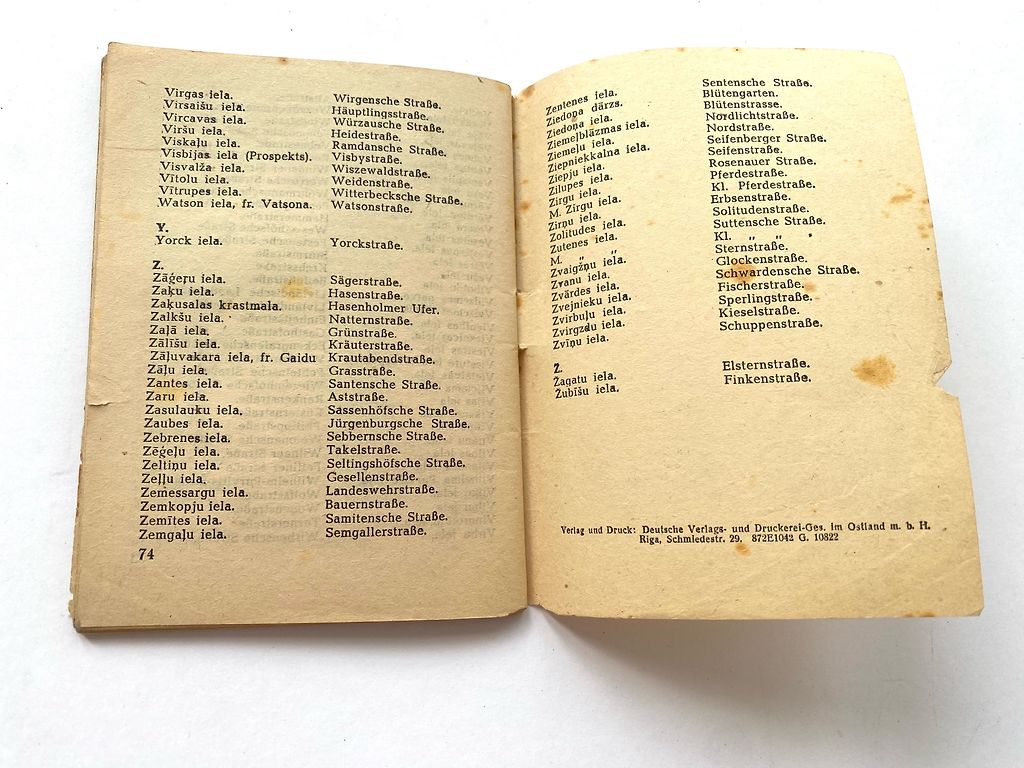 Virgas iela. Wirgensche Straße.
Virsaišu iela. Häuptlingsstraße.
Vircavas iela. Würzausche Straße.
Viršu iela. Heidestraße.
Viskaļu iela. Ramdansche Straße.
Visbijas iela (Prospekts). Visbystraße.
Visvalža iela. Wiszewaldstraße.
Vītolu iela. Weidenstraße.
Vītrupes iela. Witterbecksche Straße.
Watson iela, fr. Vatsona. Watsonstraße.
Y.
Yorck iela. Yorckstraße.
Z.
Zāģeŗu iela. Sägerstraße.
Zaķu iela. Hasenstraße.
Zaķusalas krastmala. Hasenholmer Ufer.
Zalkšu iela. Natternstraße.
Zaļā iela. Grünstraße.
Zālīšu iela. Kräuterstraße.
Zāļuvakara iela, fr. Gaidu Krautabendstraße.
Zāļu iela. Grasstraße.
Zantes iela. Santensche Straße.
Zaru iela. Aststraße.
Zasulauku iela. Sassenhöfsche Straße.
Zaubes iela. Jürgenburgsche Straße.
Zebrenes iela. Sebbernsche Straße.
Zēģeļu iela. Takelstraße.
Zeltiņu iela. Seltingshöfsche Straße.
Zeļļu iela. Gesellenstraße.
Zemessargu iela. Landeswehrstraße.
Zemkopju iela. Bauernstraße.
Zemītes iela. Samitensche Straße.
Zemgaļu iela. Semgallerstraße.
74
Zentenes iela. Sentensche Straße.
Ziedoņa dārzs. Blütengarten.
Ziedoņa iela. Blütenstrasse.
Ziemeļblāzmas iela. Nordlichtstraße.
Ziemeļu iela. Nordstraße.
Ziepniekkalna iela. Seifenberger Straße.
Ziepju iela. Seifenstraße.
Zilupes iela. Rosenauer Straße.
Zirgu iela. Pferdestraße.
M. Zirgu iela. Kl. Pferdestraße.
Zirņu iela. Erbsenstraße.
Zolitudes iela. Solitudenstraße.
Zutenes iela. Suttensche Straße.
M. „ „ Kl. „ „
Zvaigžņu iela. Sternstraße.
Zvanu iela. Glockenstraße.
Zvārdes iela. Schwardensche Straße.
Zvejnieku iela. Fischerstraße.
Zvirbuļu iela. Sperlingstraße.
Zvirgzdu iela. Kieselstraße.
Zvīņu iela. Schuppenstraße.
Ž.
Žagatu iela. Elsternstraße.
Žubīšu iela. Finkenstraße.
Verlag und Druck: Deutsche Verlags- und Druckerei-Ges. im Ostland m. b. H.
Riga, Schmiedestr. 29. 872E1042 G. 10822